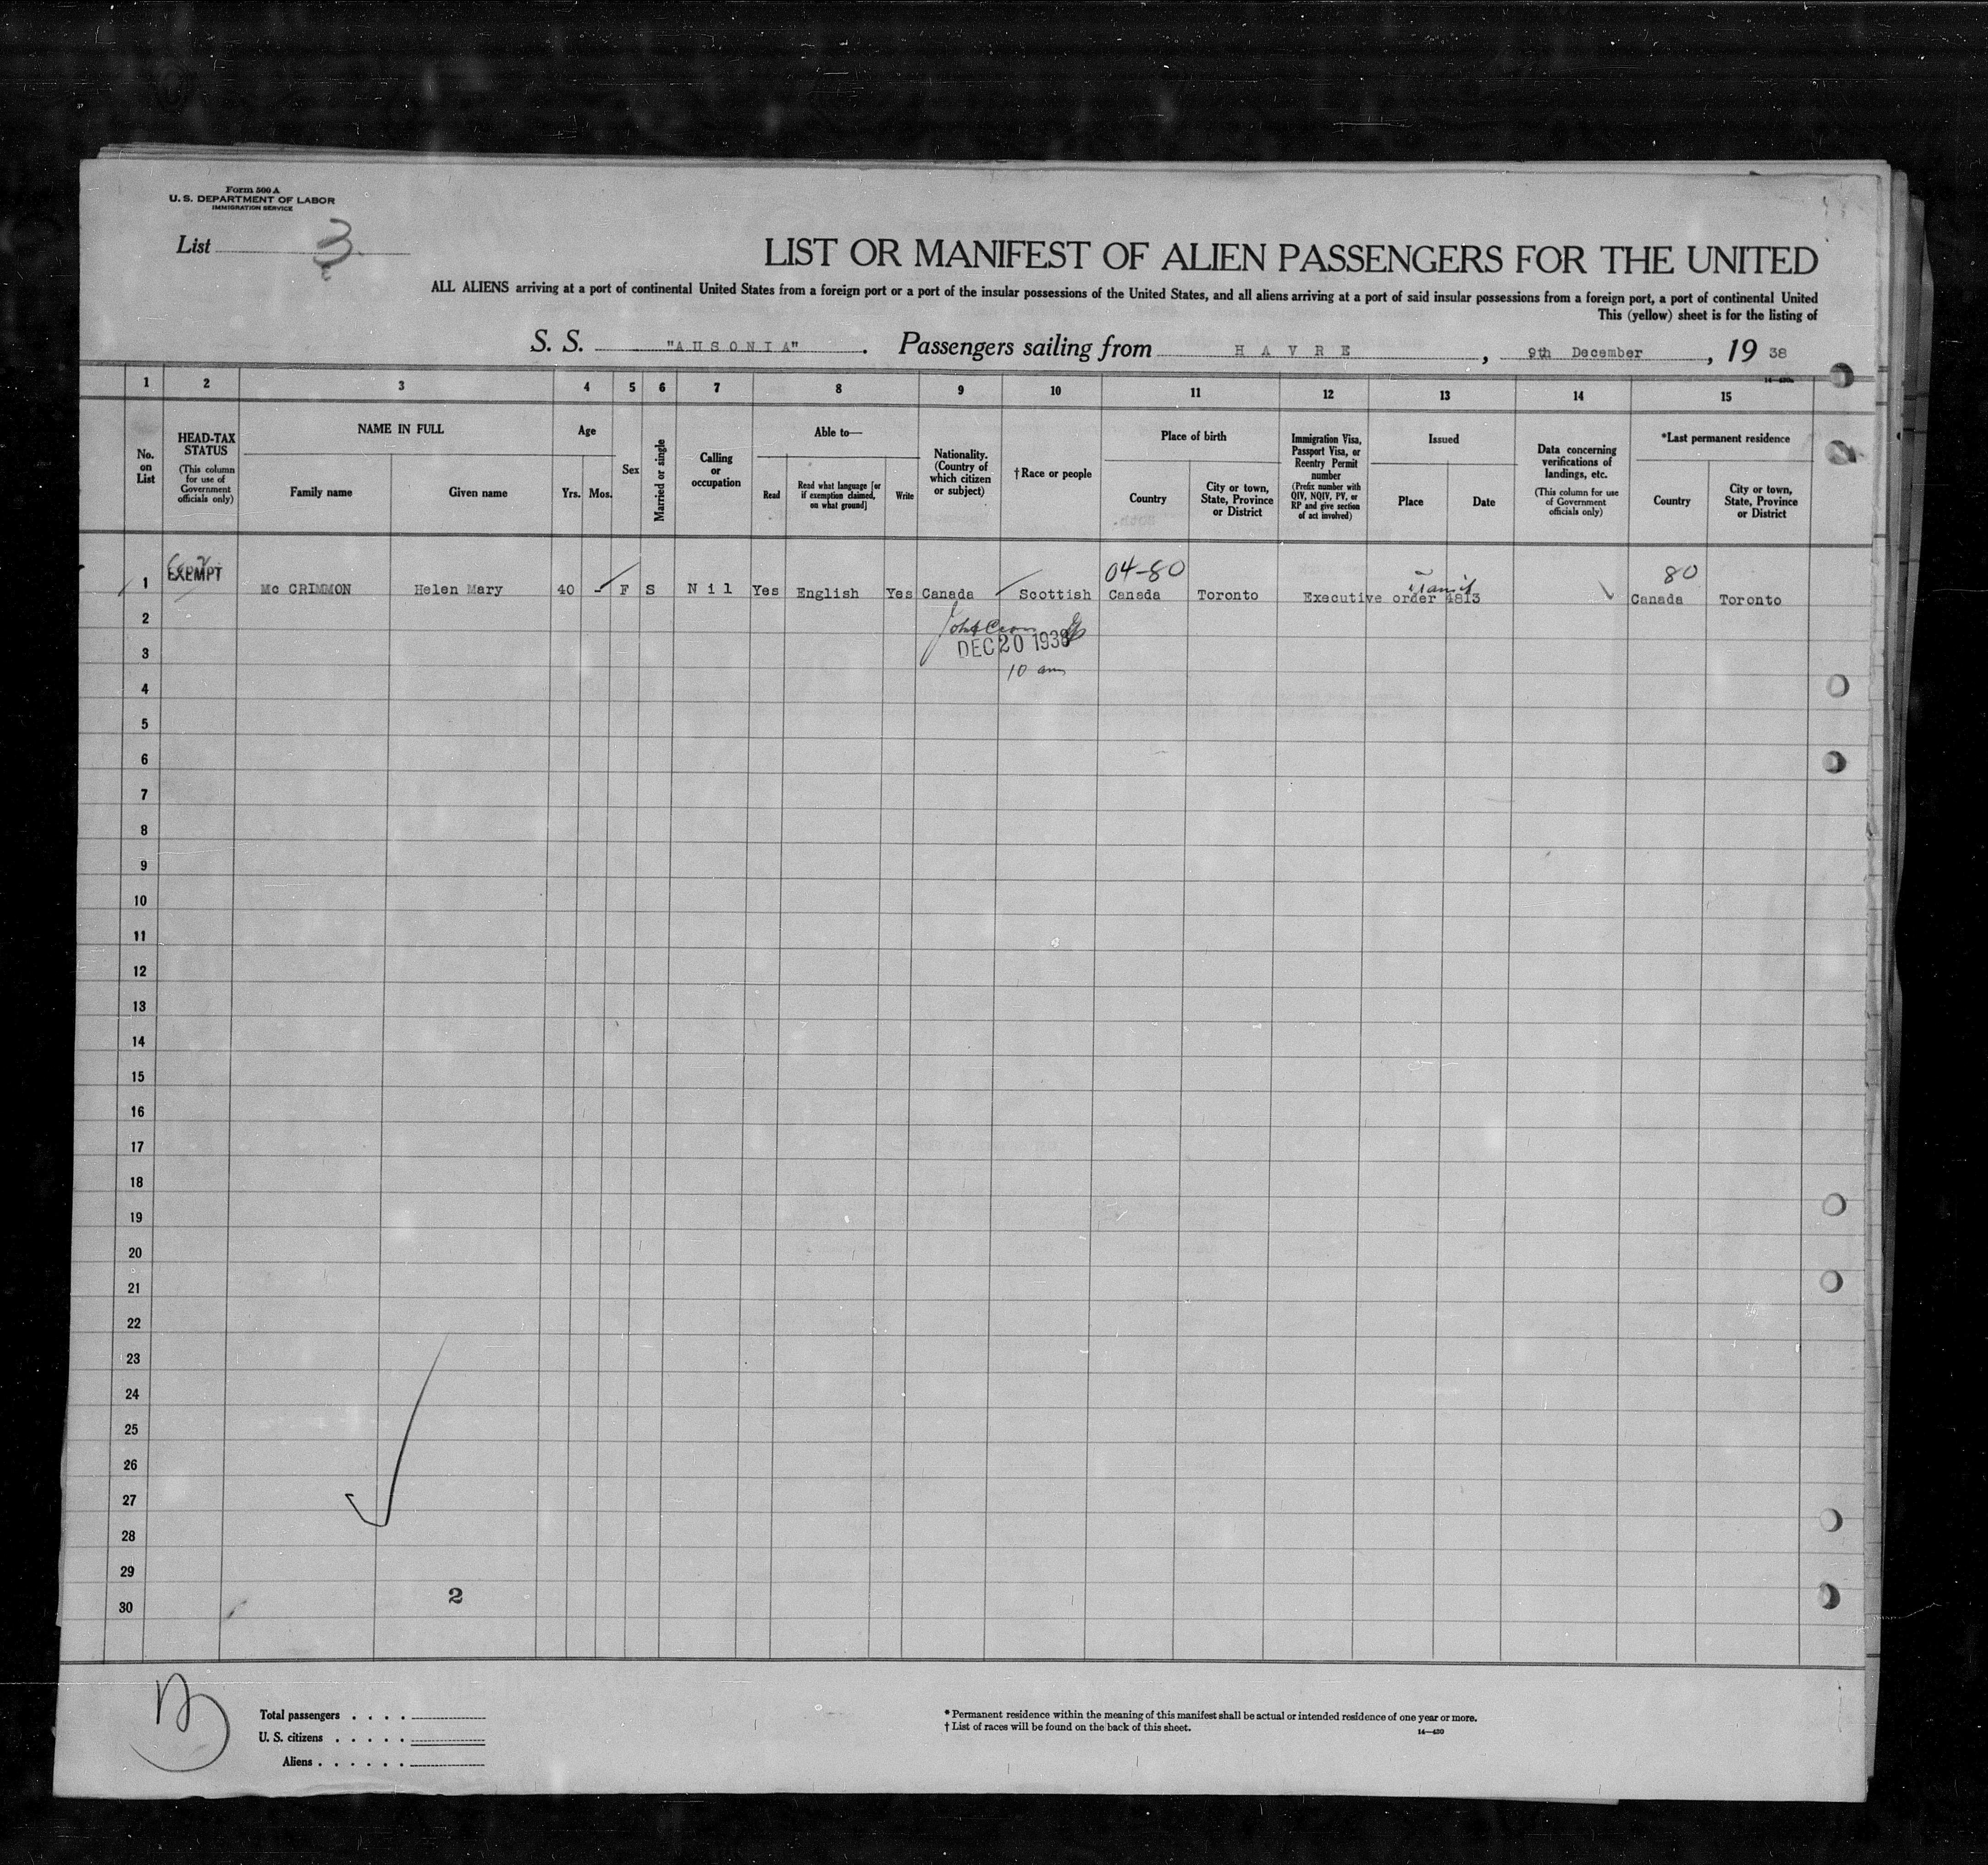 Form 500 A
U. S. DEPARTMENT OF LABOR
IMMIGRATION SERVICE
List 3
LIST OR MANIFEST OF ALIEN PASSENGERS FOR THE UNITED
ALL ALIENS arriving at a port of continental United States from a foreign port or a port of the insular possessions of the United States, and all aliens arriving at a port of said insular possessions from a foreign port, a port of continental United
This (yellow) sheet is for the listing of
S. S. "AUSONIA". Passengers sailing from HAVRE, 9th December, 19 38
14—430a
1 2 3 4 5 6 7 8 9 10 11 12 13 14 15
No. on List
HEAD-TAX STATUS
(This column for use of Government officials only)
NAME IN FULL
Family name
Given name
Age
Yrs. Mos.
Sex
Married or single
Calling or occupation
Able to—
Read
Read what language [or if exemption claimed, on what ground]
Write
Nationality. (Country of which citizen or subject)
†Race or people
Place of birth
Country
City or town, State, Province or District
Immigration Visa, Passport Visa, or Reentry Permit number
(Prefix number with QIV, NQIV, PV, or RP and give section of act involved)
Issued
Place
Date
Data concerning verifications of landings, etc.
(This column for use of Government officials only)
*Last permanent residence
Country
City or town, State, Province or District
04-80 80
1 EXEMPT Mc CRIMMON Helen Mary 40 - F S Nil Yes English Yes Canada Scottish Canada Toronto Executive order 4813 Canada Toronto
2
DEC 20 1938
3
10 am
4
5
6
7
8
9
10
11
12
13
14
15
16
17
18
19
20
21
22
23
24
25
26
27
28
29
2
30
Total passengers . . . .
U. S. citizens . . . . .
Aliens . . . . . .
* Permanent residence within the meaning of this manifest shall be actual or intended residence of one year or more.
† List of races will be found on the back of this sheet.
14—430